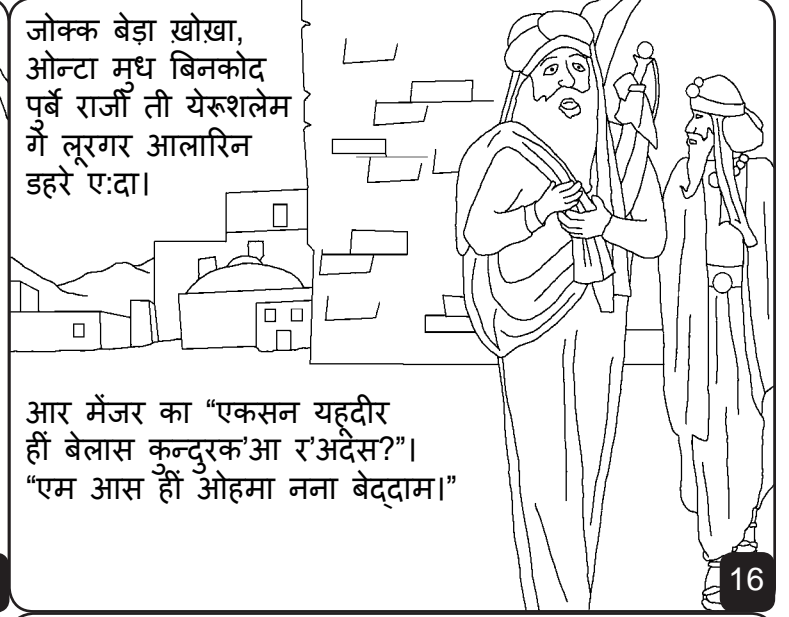 जोक्क बेड़ा ख़ोख़ा,
ओन्टा मुध बिनकोद
पुर्बे राजी ती येरूशलेम
गे लूरगर आलारिन
डहरे ए:दा।
आर मेंजर का “एकसन यहूदीर
हीं बेलास कुन्दुरक'आ र'अदस?”।
“एम आस हीं ओहमा नना बेद्दाम।”
16